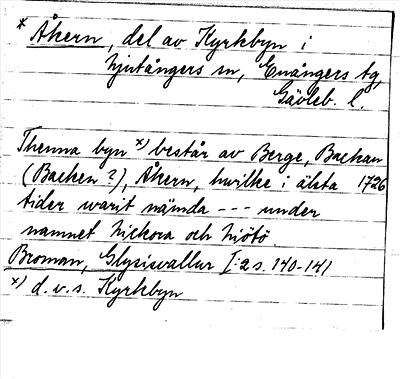 * Åkern, del av Kyrkbyn i
Njutångers sn, Enångers tg,
Gävleb. l.
Thenna byn *) består av Berge, Backan
(Backen ?), Åkern, hwilke i älsta 1726
tider warit nämda --- under
namnet Nickora och Niötö.
Broman, Glysisvallur I:2 s. 140-141
*) d.v.s. Kyrkbyn